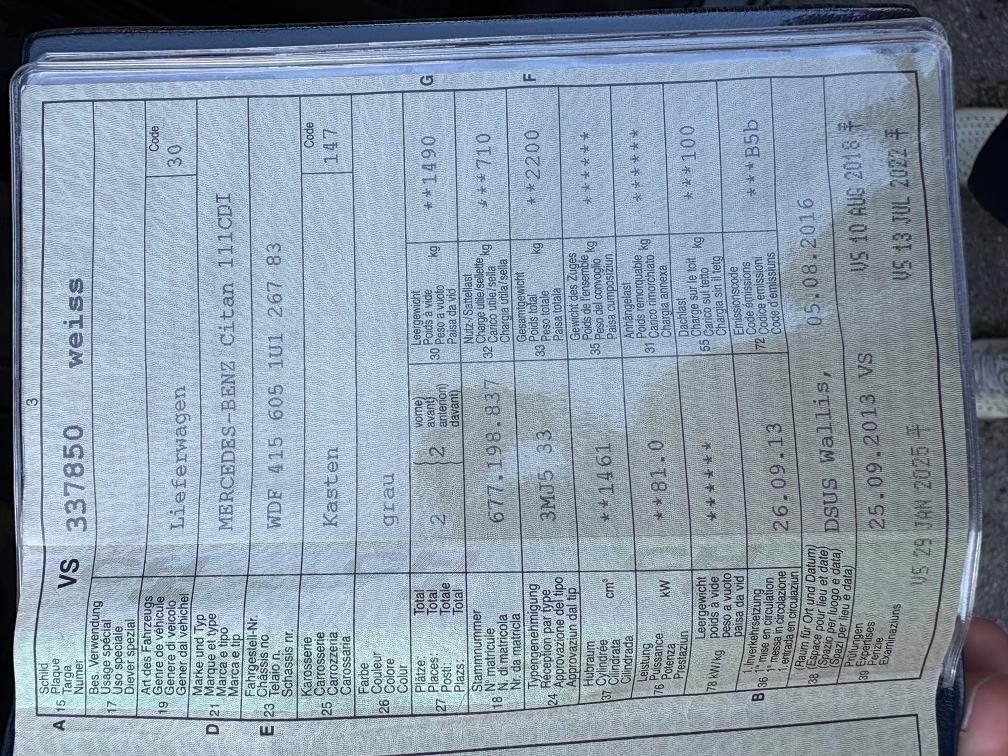 3
A 15 Schild
Plaque
Targa
Numer
VS 337850 weiss
17 Bes. Verwendung
Usage spécial
Uso speciale
Diever spezial
19 Art des Fahrzeugs
Genre de véhicule
Genere di veicolo
Gener dal vehichel
Lieferwagen
Code
30
D 21 Marke und Typ
Marque et type
Marca e tipo
Marca e tip
MERCEDES-BENZ Citan 111CDI
E 23 Fahrgestell-Nr.
Châssis no
Telaio n.
Schassis nr.
WDF 415 605 1U1 267 83
25 Karosserie
Carrosserie
Carrozzeria
Carossaria
Kasten
Code
147
26 Farbe
Couleur
Colore
Colur
grau
27 Plätze: Total
Places: Total
Posti: Totale
Plazs: Total
2
(2
vorne)
avant)
anteriori)
davant)
30 Leergewicht
Poids à vide
Peso a vuoto
Paisa da vid
kg
**1490
G
18 Stammnummer
No matricule
N. di matricola
Nr. da matricla
677.198.837
32 Nutz-/Sattellast
Charge utile/sellette
Carico utile/sella
Chargia utila/sella
kg
***710
24 Typengenehmigung
Réception par type
Approvazione del tipo
Approvaziun dal tip
3MJ5 33
33 Gesamtgewicht
Poids total
Peso totale
Paisa totala
kg
**2200
F
37 Hubraum
Cylindrée
Cilindrata
Cilindrada
cm³
**1461
35 Gewicht des Zuges
Poids de l'ensemble
Peso del convoglio
Paisa cumposiziun
kg
******
76 Leistung
Puissance
Potenza
Prestaziun
kW
**81.0
31 Anhängelast
Poids remorquable
Carico rimorchiato
Chargia annexa
kg
******
78 kW/kg Leergewicht
poids à vide
peso a vuoto
paisa da vid
******
55 Dachlast
Charge sur le toit
Carico sul tetto
Chargia sin il tetg
kg
***100
B 36 1. Inverkehrsetzung
1. mise en circulation
1. messa in circolazione
1. entrada in circulaziun
26.09.13
72 Emissionscode
Code émissions
Codice emissioni
Code d'emissiuns
***B5b
38 (Raum für Ort und Datum)
(Espace pour lieu et date)
(Spazio per luogo e data)
(Spazi per lieu e data)
DSUS Wallis, 05.08.2016
39 Prüfungen
Expertises
Perizie
Examinaziuns
25.09.2013 VS
VS 10 AUG 2018
VS 29 JAN 2025
VS 13 JUL 2022